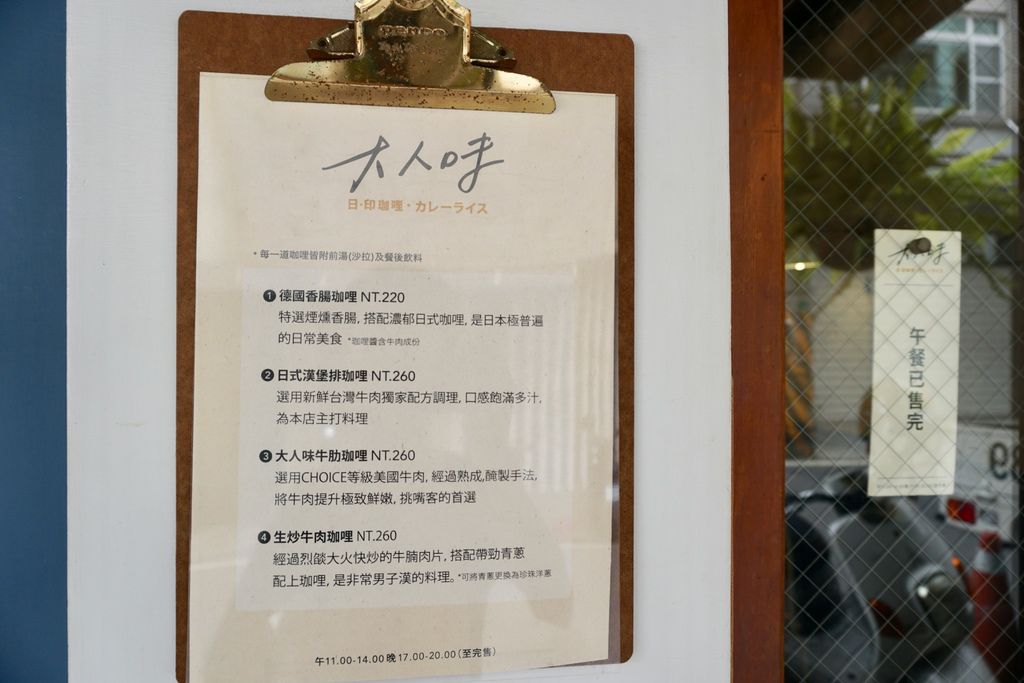 大人味
日·印咖哩·カレーライス
*每一道咖哩皆附前湯(沙拉)及餐後飲料
❶德國香腸珈哩 NT.220
特選煙燻香腸, 搭配濃郁日式咖哩, 是日本極普遍
的日常美食 *珈哩醬含牛肉成份
❷日式漢堡排珈哩 NT.260
選用新鮮台灣牛肉獨家配方調理, 口感飽滿多汁,
為本店主打料理
❸大人味牛肋珈哩 NT.260
選用CHOICE等級美國牛肉, 經過熟成,醃製手法,
將牛肉提升極致鮮嫩, 挑嘴客的首選
❹生炒牛肉珈哩 NT.260
經過烈燄大火快炒的牛腩肉片, 搭配帶勁青蔥
配上珈哩, 是非常男子漢的料理。*可將青蔥更換為珍珠洋蔥
午11.00-14.00 晚17.00-20.00(至完售)
大人味
日·印咖哩·カレーライス
午餐已售完